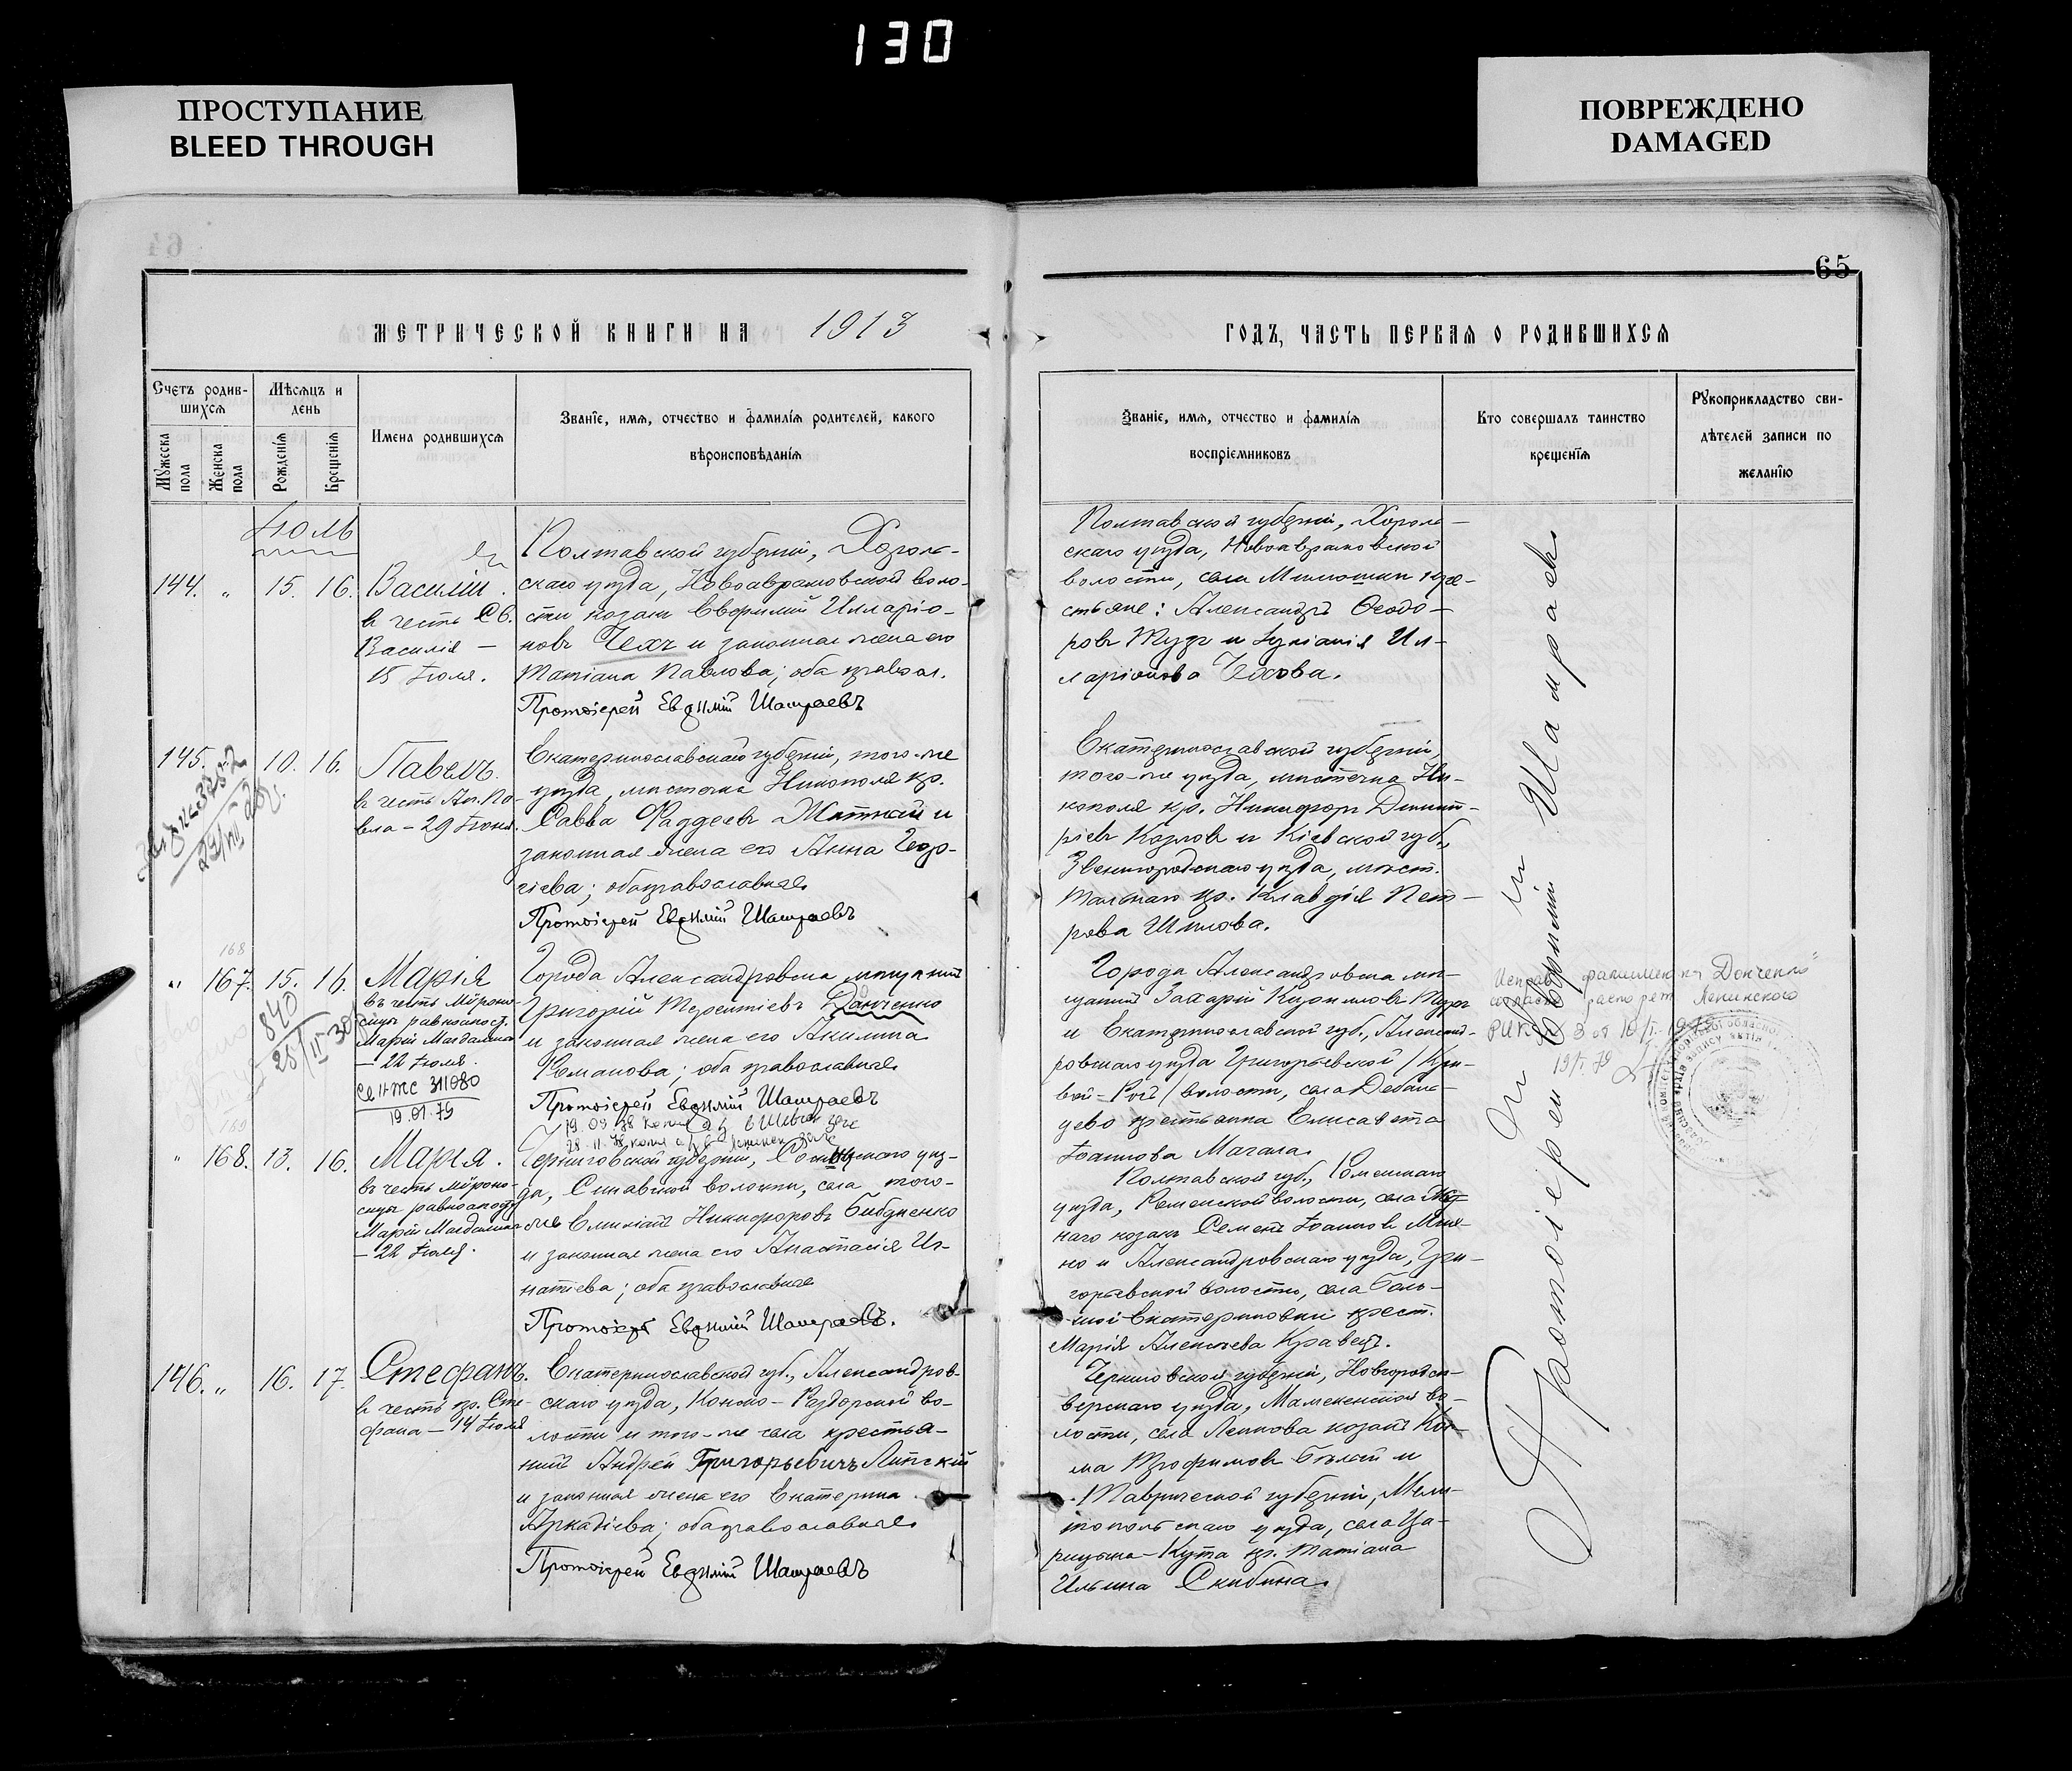 130
ПРОСТУПАНИЕ
BLEED THROUGH
ПОВРЕЖДЕНО
DAMAGED
65
МЕТРИЧЕСКОЙ КНИГИ НА 1913
ГОДЪ, ЧАСТЬ ПЕРВАЯ О РОДИВШИХСЯ
Счетъ родив-
шихся
Мѣсяцъ и
день
Мужеска
пола
Женска
пола
Рожденія
Крещенія
Имена родившихся
Званіе, имя, отчество и фамилія родителей, какого
вѣроисповѣданія
Званіе, имя, отчество и фамилія
воспріемниковъ
Кто совершалъ таинство
крещенія
Рукоприкладство сви-
дѣтелей записи по
желанію
Іюль
144. " 15. 16. Василій
въ честь Св.
Василія —
15 Іюля.
Полтавской губерніи, Хороль-
скаго уѣзда, Новоаврамовской воло-
сти козакъ Евѳимій Илларіо-
новъ Чехъ и законная жена его
Татіана Павлова; оба правосл.
Протоіерей Евѳимій Шамраевъ
Полтавской губерніи, Хороль-
скаго уѣзда, Новоаврамовской
волости, села кре-
стьяне: Александръ Ѳеодо-
ровъ и Ил-
ларіонова Чехова.
145. 10. 16. Павелъ.
въ честь Ап. Па-
вла — 29 Іюня.
Екатеринославской губерніи, того-же
уѣзда, мѣстечка Никополя кр.
Савва Фаддеевъ и
законная жена его Анна Геор-
гіева; оба православные
Протоіерей Евѳимій Шамраевъ
Екатеринославской губерніи,
того-же уѣзда, мѣстечка Ни-
кополя кр. Никифоръ Димит-
ріевъ Козловъ и Кіевской губ.,
Звенигородскаго уѣзда, мѣст.
Тальнаго кр. Клавдія Пет-
рова Шилова.
168
" 167. 15. 16. Марія
въ честь Мѵроно-
сицы равноапост.
Маріи Магдалины
— 22 Іюля.
840
311080
19.01.79
Города Александровска мѣщанинъ
Григорій Терентіевъ Данченко
и законная жена его Акилина
Романова; оба православные
Протоіерей Евѳимій Шамраевъ
Города Александровска мѣ-
щанинъ Захарій
и Екатеринославской губ., Александ-
ровскаго уѣзда Григорьевской /Кри-
вой-Рогъ/ волости, села Дебаль-
цево крестьянка Елисавета
Іоаннова Магала.
Исправ. фамилия на „Донченко"
Ленинского
19/I 79
169
" 168. 13. 16. Марія.
въ честь Мѵроно-
сицы равноапост.
Маріи Магдалины
— 22 Іюля.
Черниговской губерніи, Сосницкаго уѣз-
да, Синявской волости, села того-
же Никифоровъ
и законная жена его Анастасія Иг-
натіева; оба православные
Протоіерей Евѳимій Шамраевъ.
Полтавской губ., Роменскаго
уѣзда, Роменской волости, села
козакъ Семенъ Іоанновъ
и Александровскаго уѣзда, Гри-
горьевской волости, села Боль-
шой Екатериновки крест.
Марія Алексіева Кравецъ.
146. " 16. 17. Стефанъ.
въ честь пр. Сте-
фана — 14 Іюля
Екатеринославской губ., Александров-
скаго уѣзда, Конско-Раздорской во-
лости и того-же села крестья-
нинъ Андрей Григорьевичъ Липскій
и законная жена его Екатерина
Аркадіева; оба православные.
Протоіерей Евѳимій Шамраевъ
Черниговской губерніи, Новгородсѣ-
верскаго уѣзда, во-
лости, села козакъ Коз-
ма Трофимовъ Бѣлый и
Таврической губерніи, Мели-
топольскаго уѣзда, села Ца-
рицына-Кута кр. Татіана
Ильина Скибина.
Протоіерей Евѳимій Шамраевъ